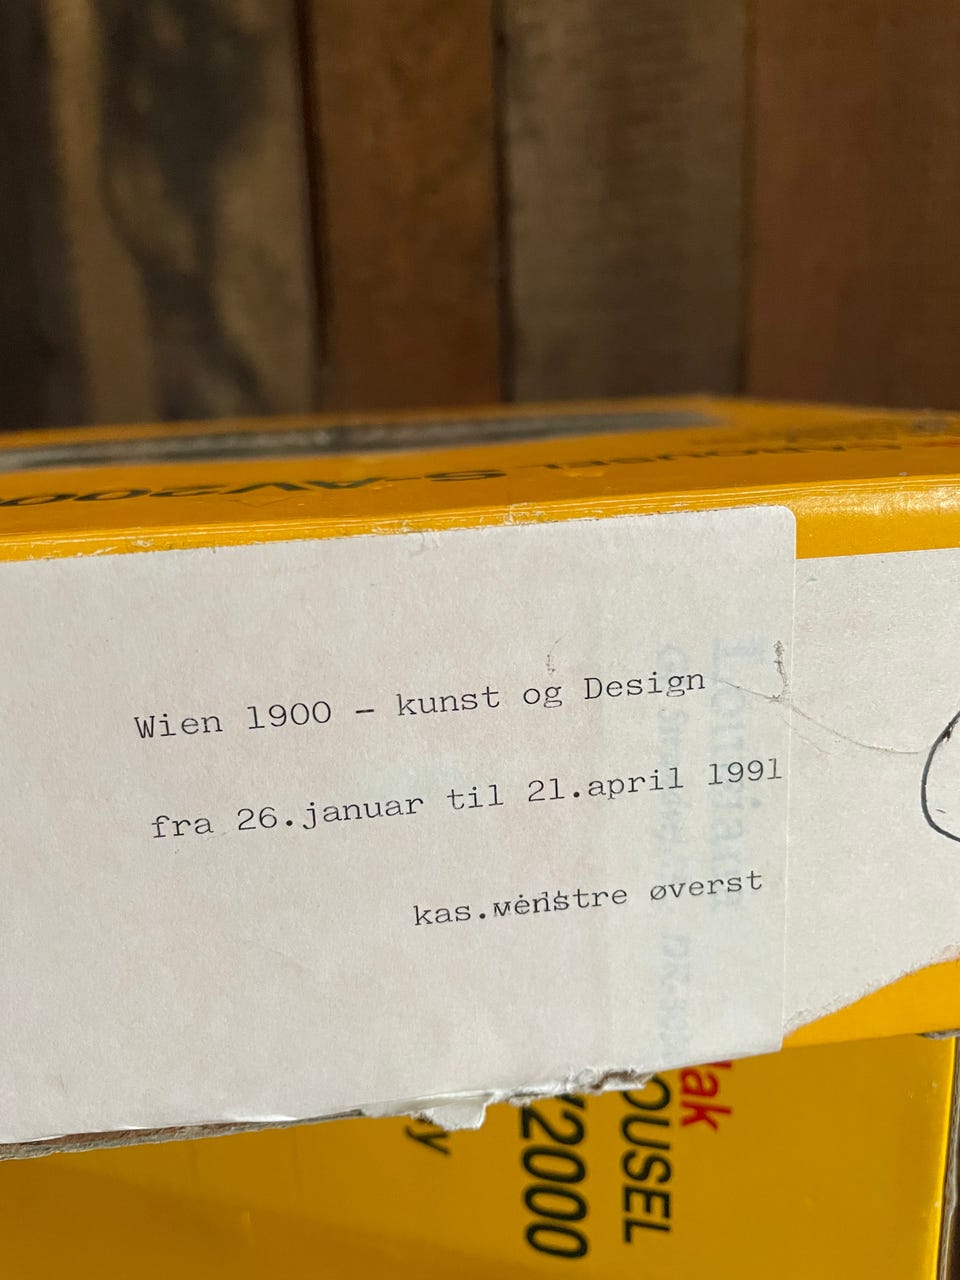 CAROUSEL S-AV2000
Wien 1900 - kunst og Design
fra 26.januar til 21.april 1991
kas.venstre øverst
Louisiana
OUSEL
2000